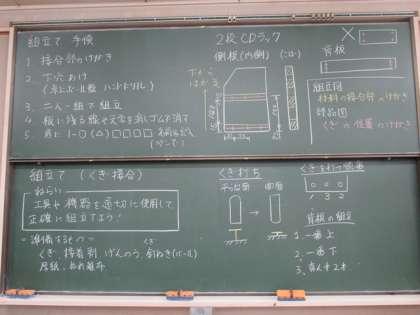 組立て 手順
1. 接合部のけがき
2. 下穴あけ
(卓上ボール盤 ハンドドリル)
3. 二人一組で組立
4. 板に残る線や文字を消しゴムで消す
5. 1-○(△)□□□□ 名前を
(ペンで)
2段CDラック
側板(内側)
下から
はかる
背板
組立図
材料の接合部のけがき
部品図
くぎの位置のけがき
組立て (くぎ接合)
ねらい
工具や機器を適切に使用して
正確に組立てよう!
-準備するもの-
くぎ、接着剤、げんのう、
くぎ打ち
平らな面
曲面
くぎを打つ順番
1 3 2
背板の組立
1. 一番上
2. 一番下
3.